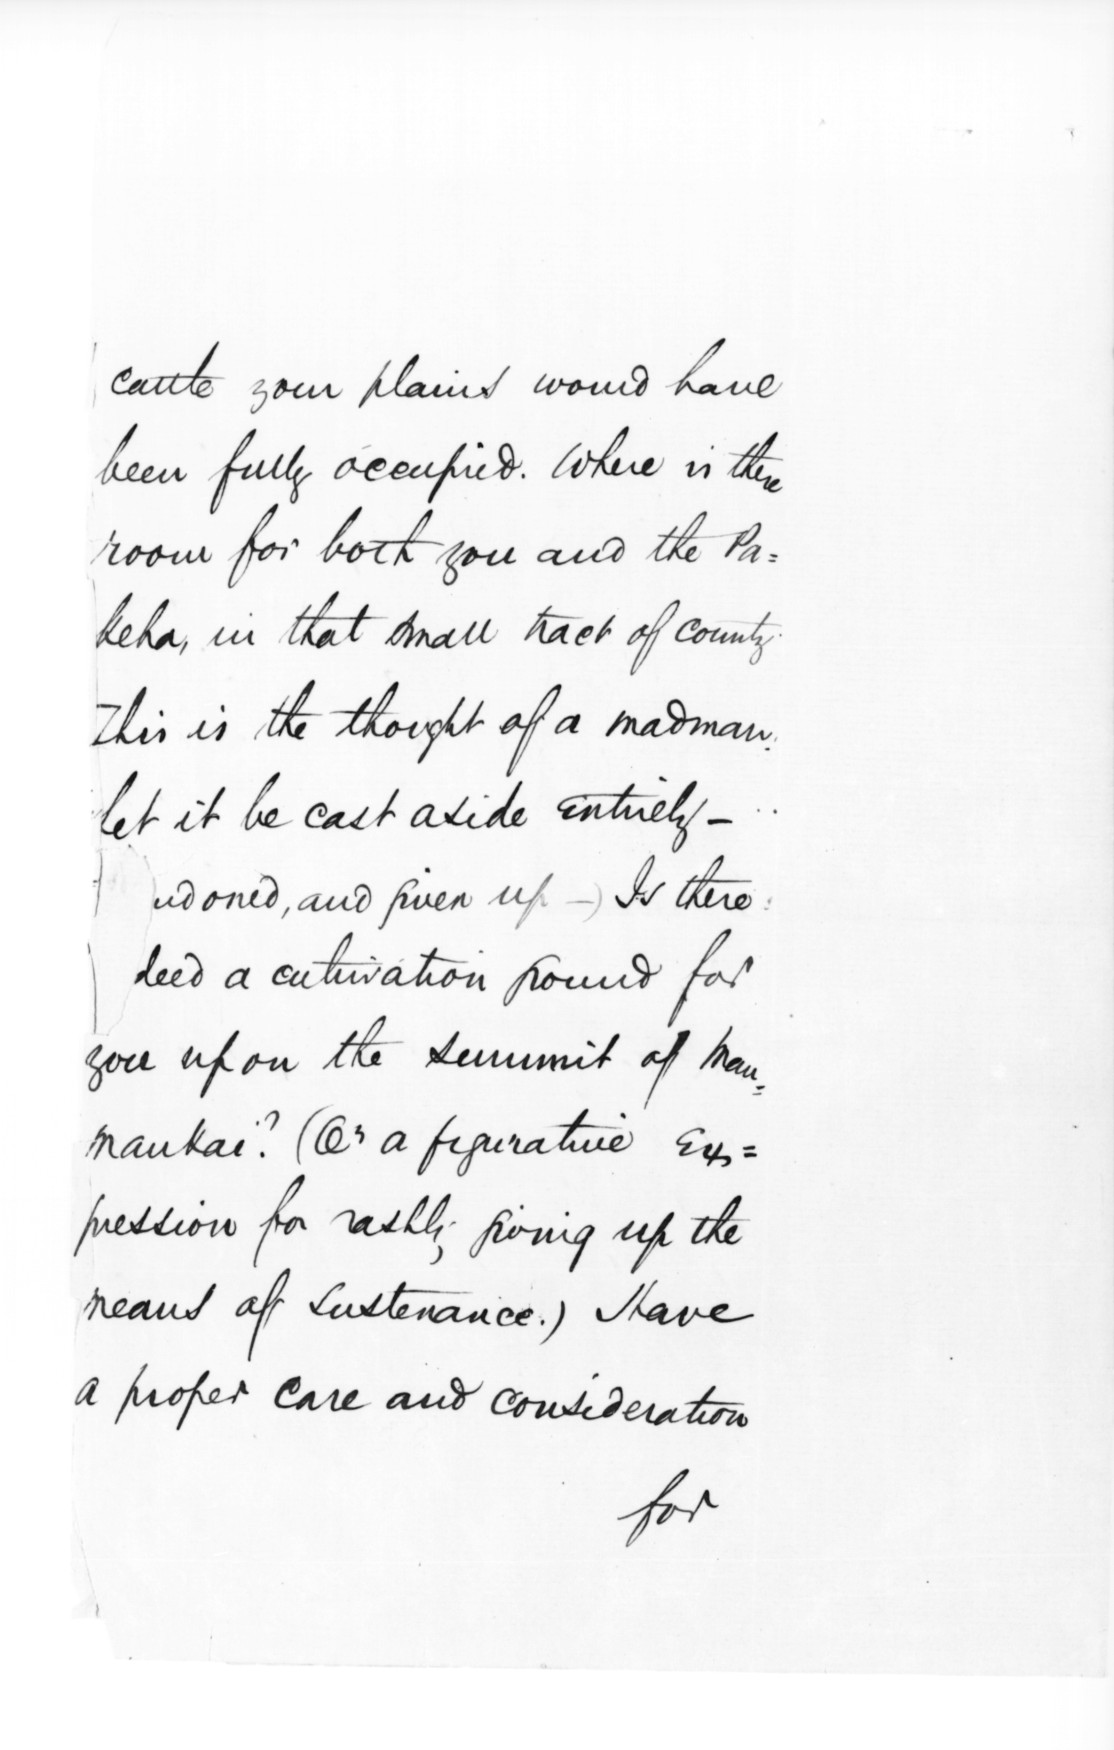 cattle your plains would have
been fully occupied. Where is there
room for both you and the Pa=
keha, in that small tract of country.
This is the thought of a madman.
let it be cast aside entirely –
ndoned, and given up –) Is there
deed a cultivation ground for
you upon the summit of Mau=
maukai? (Or a figurative Ex=
pression for rashly giving up the
means of sustenance.) Have
a proper care and consideration
for